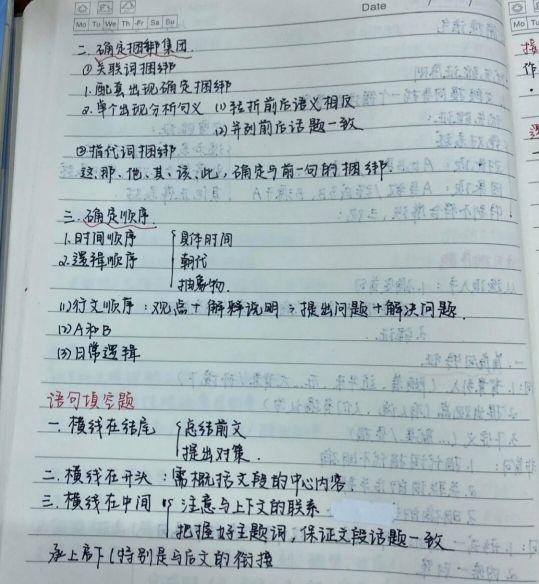 Date
Mo Tu We Th Fr Sa Su
二. 确定捆绑集团
①关联词捆绑
1. 配套出现确定捆绑
2. 单个出现分析句义 (1) 转折前后语义相反
(2) 并列前后话题一致
②指代词捆绑
这、那、他、其、该、此，确定与前一句的捆绑.
三. 确定顺序.
1. 时间顺序 { 具体时间
2. 逻辑顺序 朝代
抽象物.
(1) 行文顺序：观点+解释说明 → 提出问题+解决问题.
(2) A和B
(3) 日常逻辑
语句填空题
一. 横线在结尾 { 总结前文
提出对策.
二. 横线在开头：需概括文段的中心内容
三. 横线在中间 注意与上下文的联系
把握好主题词，保证文段话题一致
承上启下(特别是与后文的衔接
接
作